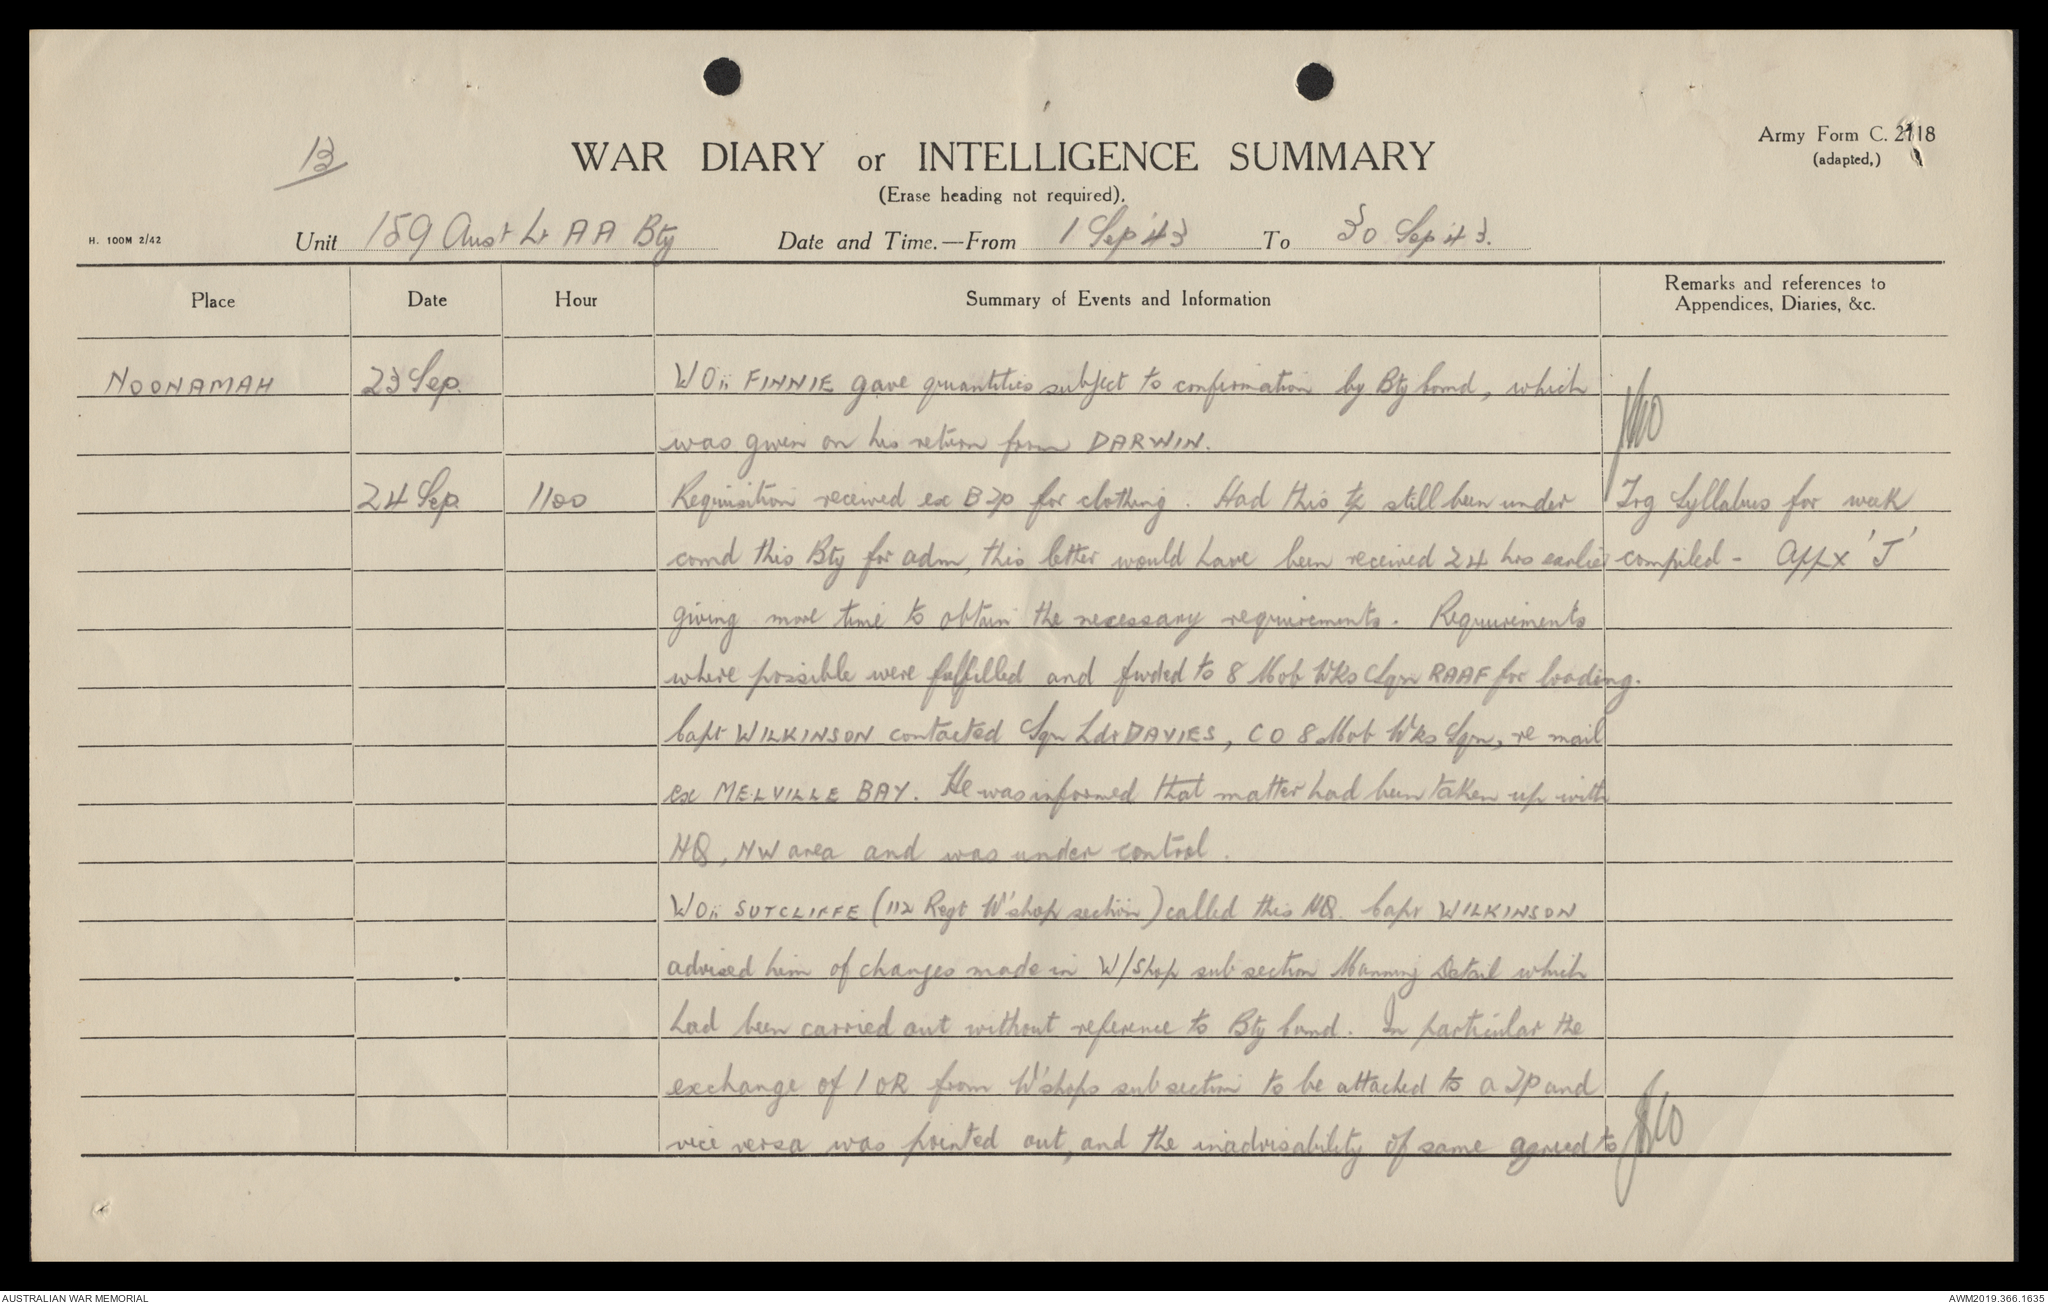 13
WAR DIARY or INTELLIGENCE SUMMARY
(Erase heading not required).
Army Form C. 2118
(adapted,)
H. 100M 2/42
Unit 159 Aust Lt AA Bty Date and Time.—From 1 Sep '43 To 30 Sep 43.
Place Date Hour Summary of Events and Information Remarks and references to
Appendices, Diaries, &c.
NOONAMAH 23 Sep. WOii FINNIE gave quantities subject to confirmation by Bty Comd, which
was given on his return from DARWIN.
24 Sep. 1100 Requisition received ex B Tp for clothing. Had this tp still been under Trg Syllabus for week
comd this Bty for adm, this letter would have been received 24 hrs earlier compiled - Appx 'J'
giving more time to obtain the necessary requirements. Requirements
where possible were fulfilled and fwded to 8 Mob Wks Sqn RAAF for loading.
Capt WILKINSON contacted Sqn Ldr DAVIES, CO 8 Mob Wks Sqn, re mail
ex MELVILLE BAY. He was informed that matter had been taken up with
HQ, NW area and was under control.
WOii SUTCLIFFE (112 Regt W'shop section) called this HQ. Capt WILKINSON
advised him of changes made in W/Shop sub section Manning Detail which
had been carried out without reference to Bty Comd. In particular the
exchange of 1 OR from W'shops sub section to be attached to a Tp and
vice versa was pointed out, and the inadvisability of same agreed to
AUSTRALIAN WAR MEMORIAL
AWM2019.366.1635